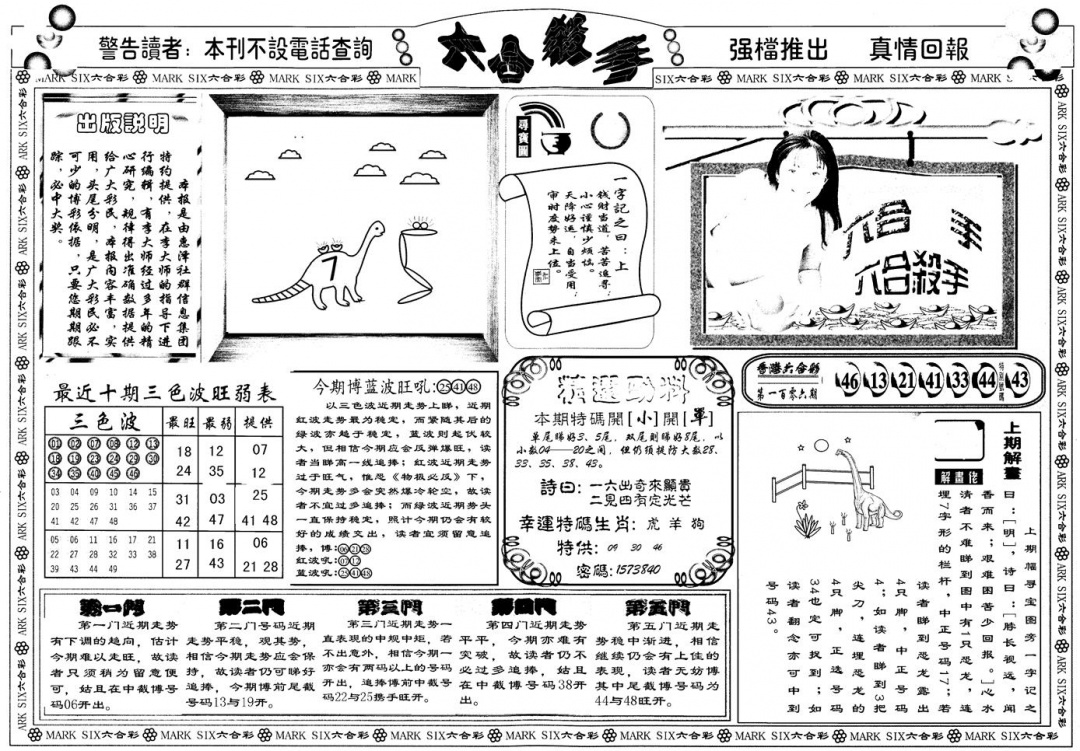 警告讀者：本刊不設電話查詢
六合殺手
强檔推出　真情回報
MARK SIX六合彩 MARK SIX六合彩 MARK SIX六合彩 MARK SIX六合彩 MARK
SIX六合彩 MARK SIX六合彩 MARK SIX六合彩 MARK SIX六合彩
出版説明
本报是由惠泽社群信息集团
特约提供，在李大师的指导下进
行编辑，有李大师经过多年的精
心研究，规律得出准确数据提供
给广大彩民，本报内容丰富，实
用，头尾分明，是广大彩民必不
可少的博彩依据，只要您期期跟
踪，必中大奖。
7
尋寶圖
一字記之曰：上
钱财当道，苦苦追寻；
小心谨慎少烦恼。
天降好运，自当受用；
审时度势来上位。
六合
手
六合殺手
最近十期三色波旺弱表
三色波 最旺 最弱 提供
01 02 07 08 12 13
18 19 23 24 29 30
34 35 40 45 46
18 12 07
24 35 12
03 04 09 10 14 15
20 25 26 31 36 37
41 42 47 48
31 03 25
42 47 41 48
05 06 11 16 17 21
22 27 28 32 33 38
39 43 44 49
11 16 06
27 43 21 28
今期博蓝波旺吼：25 41 48
以三色波近期走势上睇，近期
红波走势最为稳定，而紧随其后的
绿波亦趋于稳定，蓝波则起伏较
大，但相信今期应会反弹爆旺，读
者当睇高一线追捧；红波近期走势
过于旺气，惟恐《物极必反》下，
今期走势多会突然爆冷轮空，故读
者不宜过多追捧；而绿波近期势头
一直保持稳定，照计今期仍会有较
好的成绩交出，读者宜须留意追
捧，博：06 21 28
红波吼：07 12
蓝波吼：25 41 48
精選勁料
本期特碼開[小]開[單]
单尾睇好3、5尾，双尾则睇好8尾，以
小数04——20之间，但仍须提防大数28、
33、35、38、43。
詩曰：一六出奇來顯貴
二見四有定光芒
幸運特碼生肖：虎 羊 狗
特供：09 30 46
密碼：1573840
香港六合彩
第一百零六期
46 13 21 41 33 44
特别號碼
43
上期解畫
解畫佬
上期幅寻宝图秀一字记之
曰：[明]，诗曰：[脖长视远，闻
香而来；艰难困苦少回报。]心水
清者不难睇到图中有1只恐龙，连
埋7字形的栏杆，中正号码17；若
读者睇到恐龙露出
4只脚，中正号码
4；如读者睇到3把
尖刀，连埋恐龙的
4只脚，正选号码
34也定可找到；如
读者翻念亦可中到
号码43。
第一門
第一门近期走势
有下调的趋向，估计
今期难以走旺，故读
者只须稍为留意便
可，姑且在中截博号
码06开出。
第二門
第二门号码近期
走势平稳，观其势，
相信今期走势应会保
持，故读者仍可睇好
追捧，今期博前尾截
号码13与19开。
第三門
第三门近期走势一
直表现的中规中矩，若
不出意外，相信今期一
亦会有两码以上的号码
开出，追捧博前中截号
码22与25携手旺开。
第四門
第四门近期走势
平平，今期亦难有
突破，故读者仍不
必过多追捧，姑且
在中截博号码38开
出。
第五門
第五门近期走
势稳中渐进，相信
继续仍会有上佳的
表现，读者无妨博
其中尾截博号码为
44与48旺开。
MARK SIX六合彩 MARK SIX六合彩 MARK SIX六合彩 MARK SIX六合彩 MARK SIX六合彩 MARK SIX六合彩 MARK SIX六合彩 MARK SIX六合彩